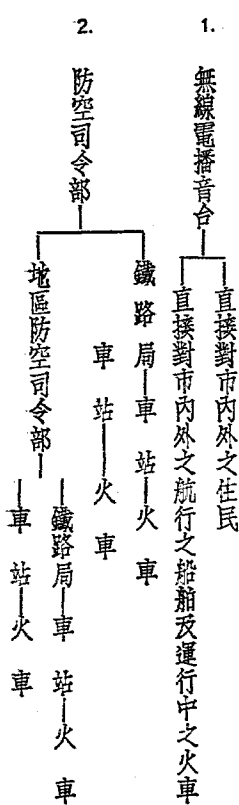 1.
無線電播音台
直接對市內外之住民
直接對市內外之航行之船舶及運行中之火車
2.
防空司令部
鐵路局—車站—火車
車站—火車
地區防空司令部
鐵路局—車站—火車
車站—火車